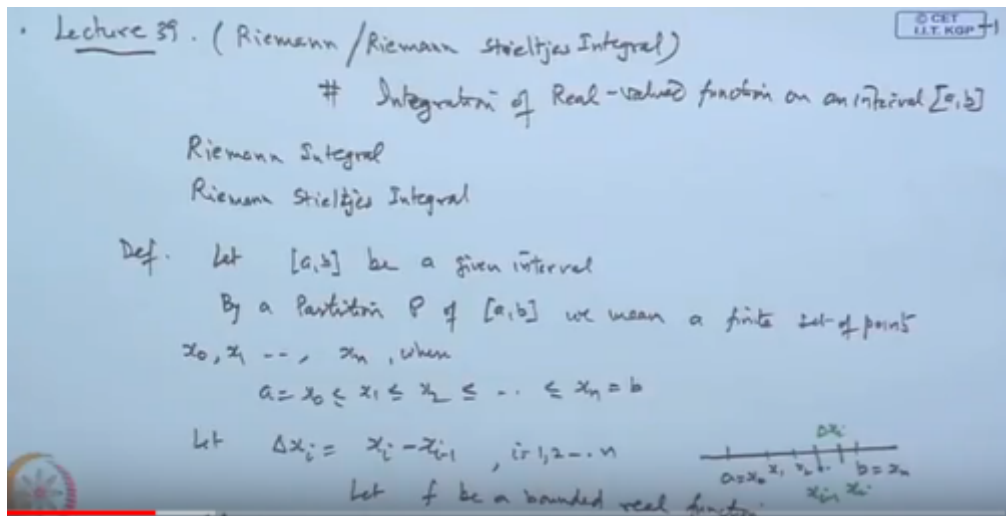 Lecture 39. (Riemann/Riemann Stieltjes Integral)
© CET
I.I.T. KGP
# Integration of Real-valued function on an interval [a,b]
Riemann Integral
Riemann Stieltjes Integral
Def. Let [a,b] be a given interval
By a Partition P of [a,b] we mean a finite set of point
x₀, x₁ --, xₙ, when
a = x₀ ≤ x₁ ≤ x₂ ≤ -- ≤ xₙ = b
Let Δxᵢ = xᵢ - xᵢ₋₁, i=1,2--n
Δxᵢ
a=x₀ x₁ x₂ b=xₙ
xᵢ₋₁ xᵢ
Let f be a bounded real function